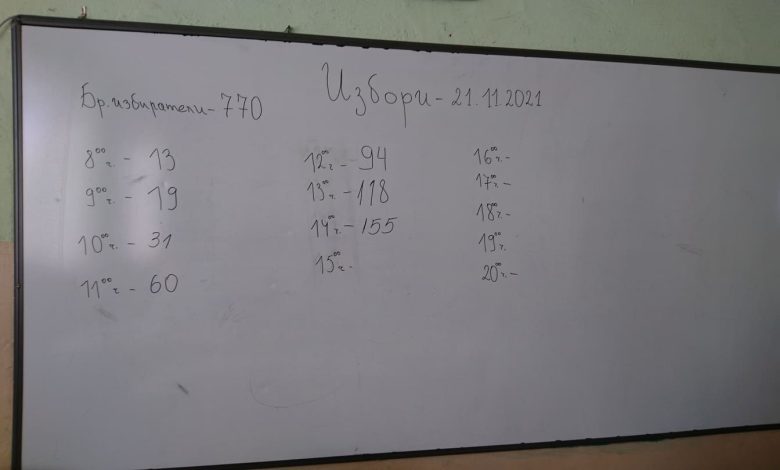 Избори - 21.11.2021
Бр. избиратели - 770
8⁰⁰ч. - 13
9⁰⁰ч. - 19
10⁰⁰ч. - 31
11⁰⁰ч - 60
12⁰⁰ч. - 94
13⁰⁰ч. - 118
14⁰⁰ч. - 155
15⁰⁰ч. -
16⁰⁰ч. -
17⁰⁰ч. -
18⁰⁰ч. -
19⁰⁰ч.
20⁰⁰ч. -